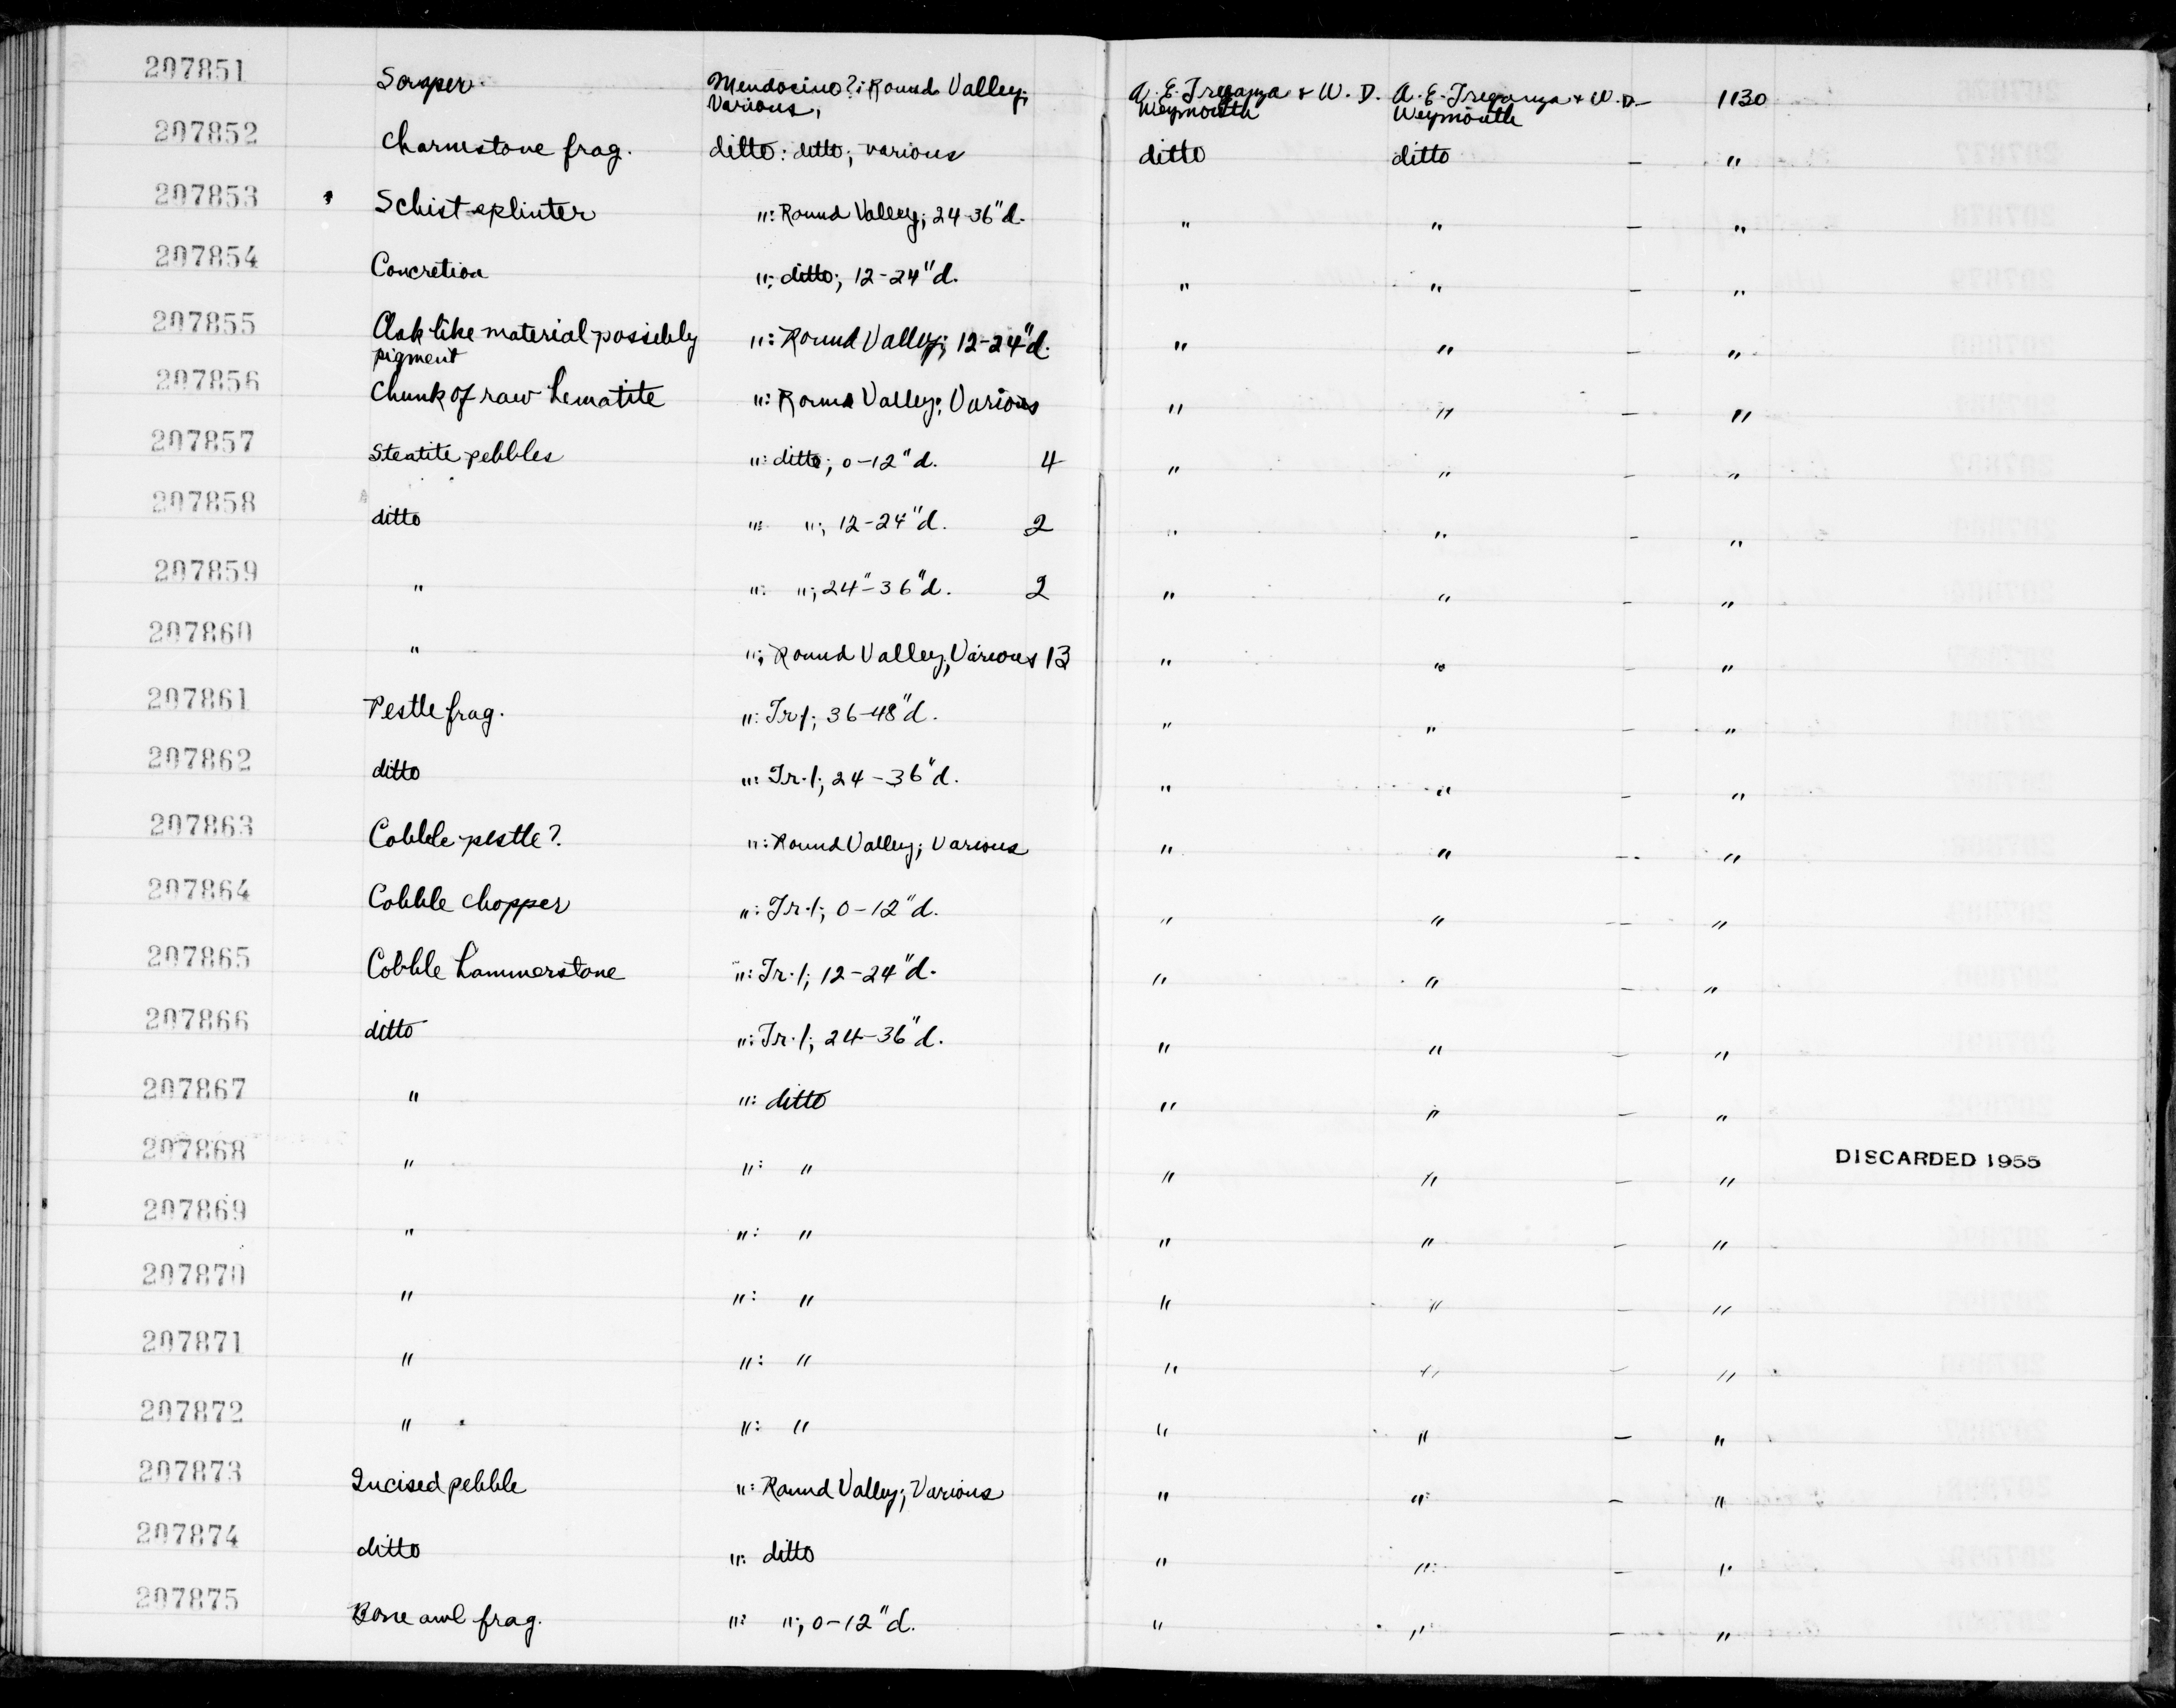 207851 Scraper. Mendocino?: Round Valley; A. E. Treganza & W. D. A. E. Treganza & W. D. — 1130
Various, Weymouth Weymouth
207852 Charmstone frag. ditto: ditto; various ditto ditto — "
207853 Schist splinter ": Round Valley; 24-36"d. " " — "
207854 Concretion ": ditto; 12-24"d. " " — "
207855 Ask like material possibly ": Round Valley; 12-24"d. " " — "
pigment
207856 Chunk of raw hematite ": Round Valley; Various " " — "
207857 Steatite pebbles ": ditto; 0-12"d. 4 " " — "
207858 ditto ": "; 12-24"d. 2 " " — "
207859 " ": "; 24"-36"d. 2 " " — "
207860 " "; Round Valley; Various 13 " " — "
207861 Pestle frag. ": Tr. 1; 36-48"d. " " — "
207862 ditto ": Tr. 1; 24-36"d. " " — "
207863 Cobble pestle? ": Round Valley; Various " " — "
207864 Cobble chopper ": Tr. 1; 0-12"d. " " — "
207865 Cobble hammerstone ": Tr. 1; 12-24"d. " " — "
207866 ditto ": Tr. 1; 24-36"d. " " — "
207867 " ": ditto " " — "
207868 " ": " " " — " DISCARDED 1955
207869 " ": " " " — "
207870 " ": " " " — "
207871 " ": " " " — "
207872 " ": " " " — "
207873 Incised pebble ": Round Valley; Various " " — "
207874 ditto ": ditto " " — "
207875 Bone awl frag. ": "; 0-12"d. " " — "